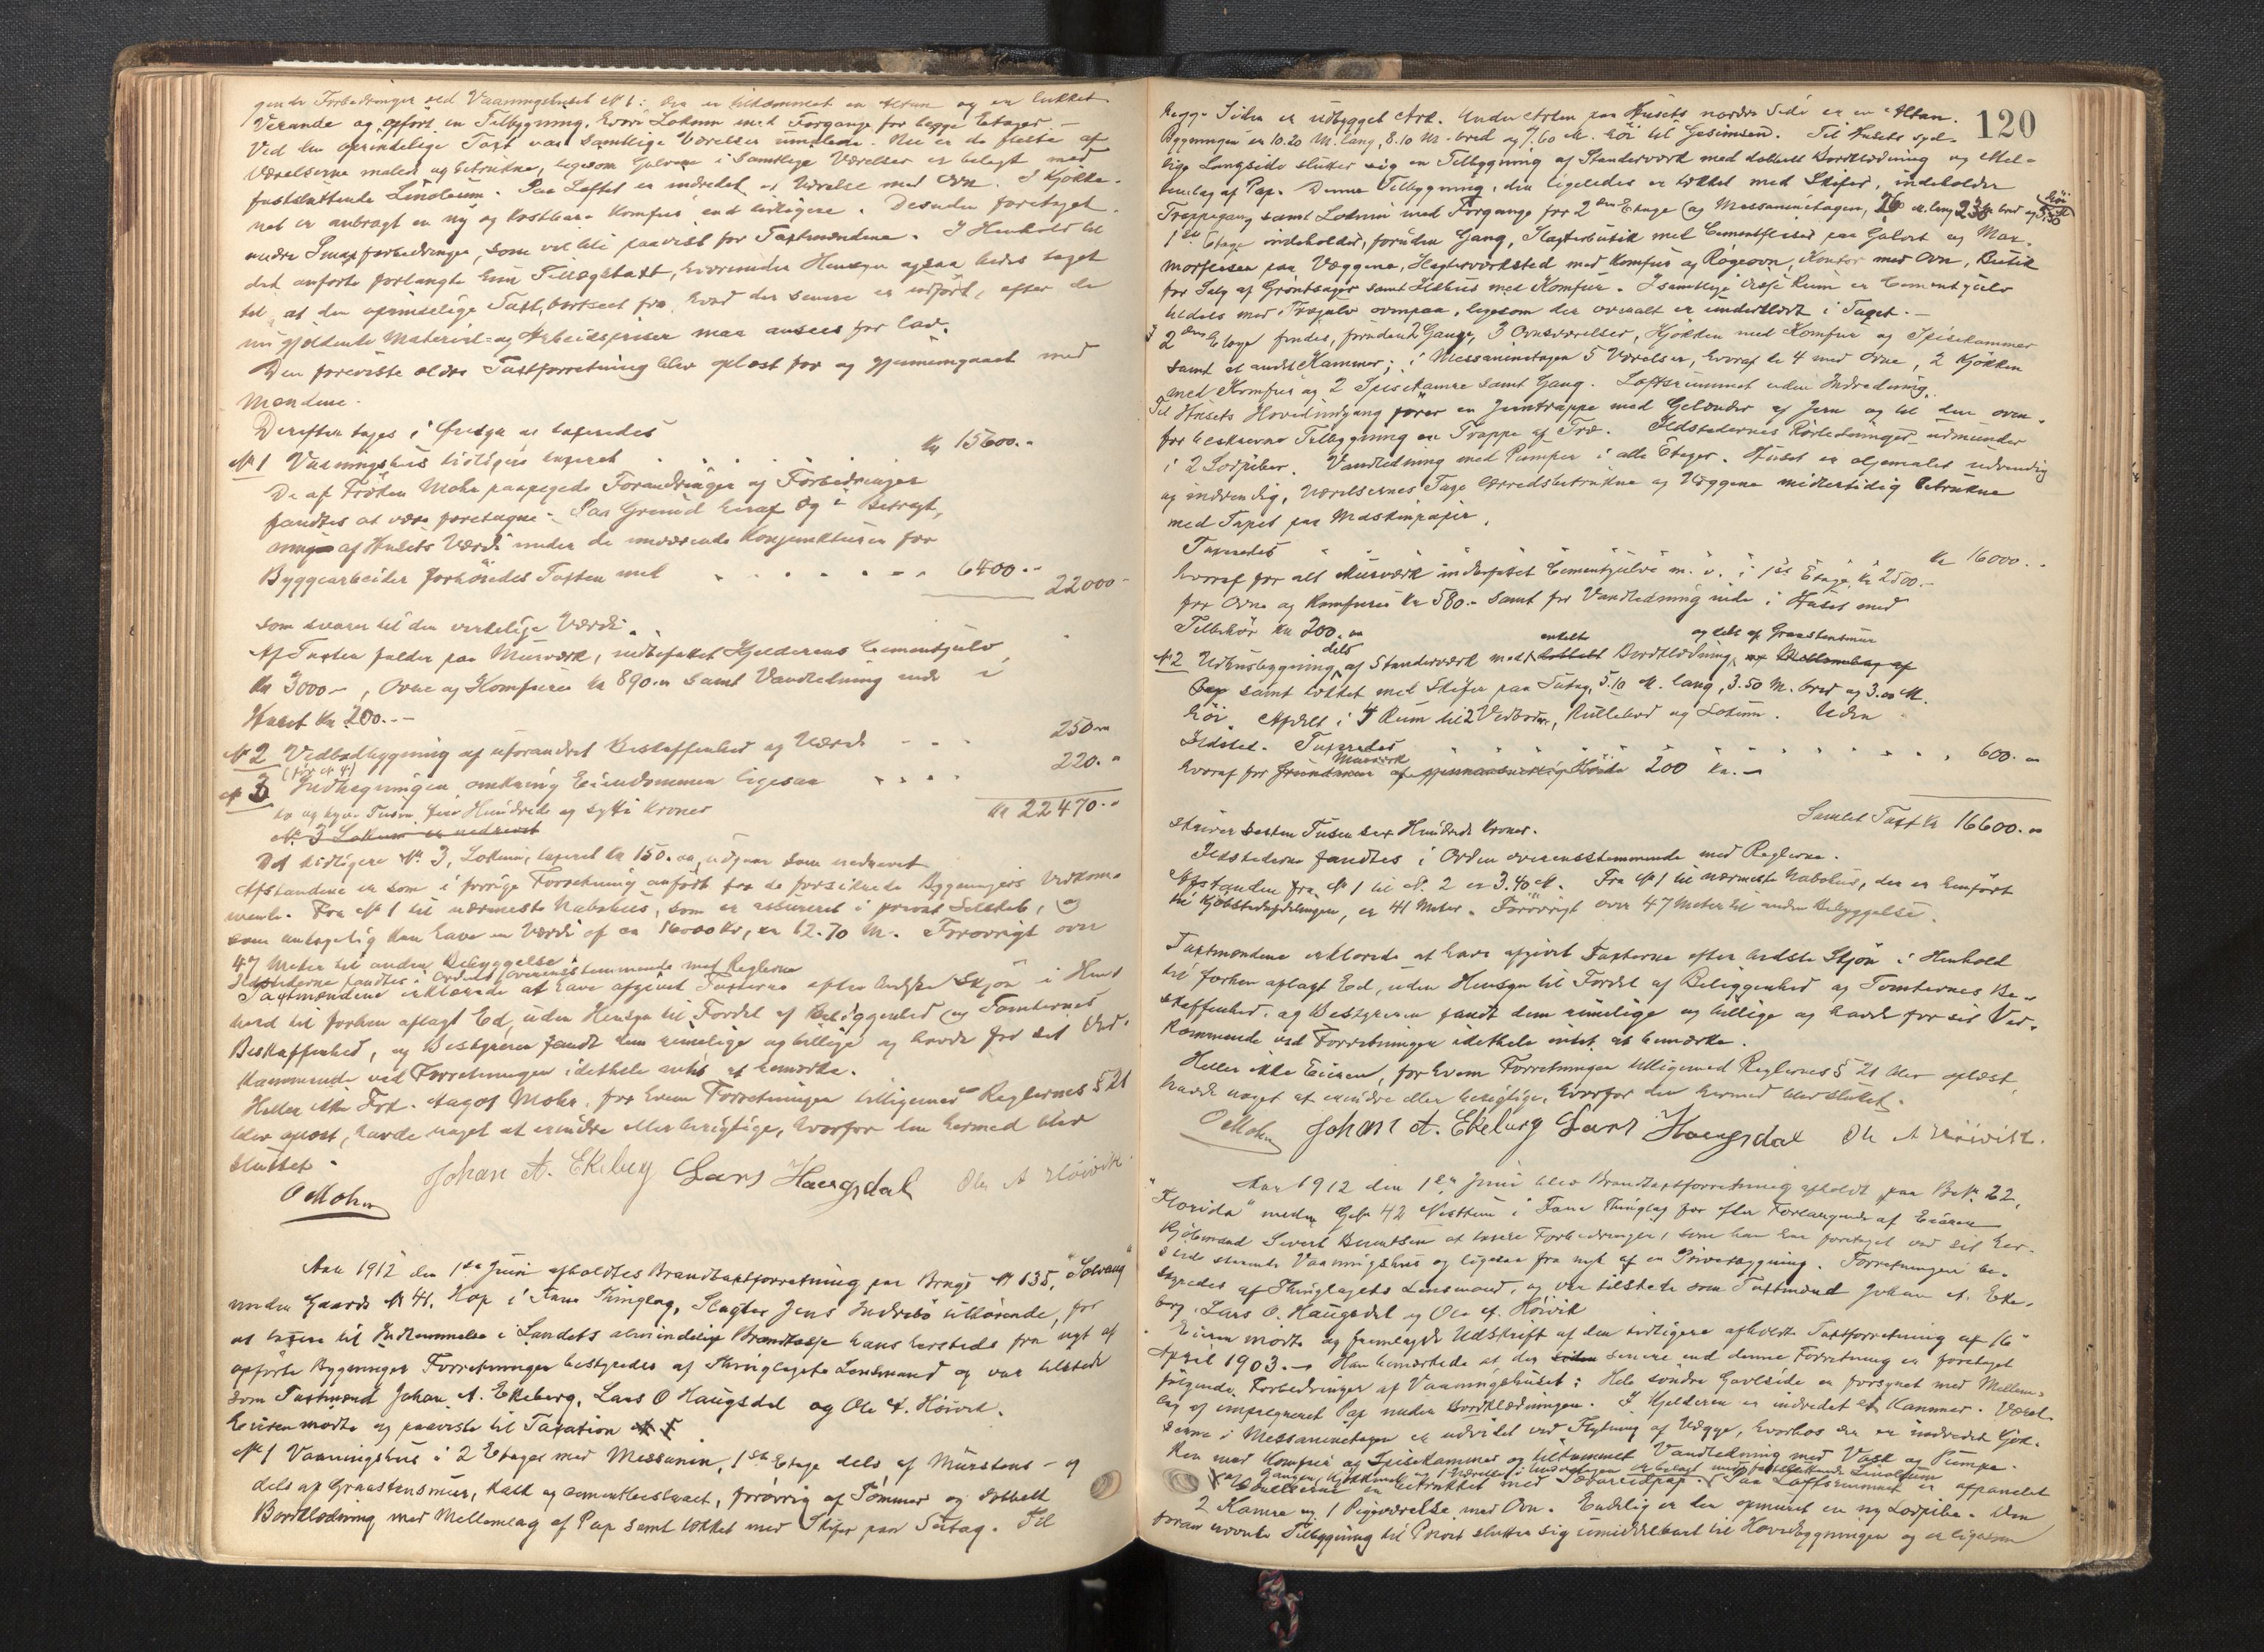 gende Forbedringer ved Vaaningshuset № 1: Der er tilkommet en Altan og en lukket
Veranda og opført en Tilbygning, hvori Lokum med Forgange for begge Etager. –
Ved den oprindelige Taxt var samtlige Værelser umalede. Nu er de fleste af
Værelserne malede og betrukne, ligesom Gulvene i samtlige Værelser er belagt med
fastsluttende Linoleum. Paa Loftet er indredet et Værelse med Ovn. I Kjøkke-
net er anbragt en ny og kostbare Komfur end tidligere. Desuden foretaget
andre Smaaforbedringer, som vil bli paavist for Taxtmændene. I Henhold til
det anførte forlangte hun Tillægstaxt, hvorunder Hensyn ogsaa bedes taget
til, at den oprindelige Taxt, bortseet fra, hvad der senere er udført, efter de
nu gjældende Material- og Arbeidspriser maa ansees for lav.
Den foreviste ældre Taxtforretning blev oplæst for og gjennemgaaet med
Mændene.
Derefter toges i Øiesyn og taxeredes
№ 1 Vaaningshus tidligere taxeret Kr 15600.-
De af Frøken Mohr paapegede Forandringer og Forbedringer
fandtes at være foretagne. Paa Grund heraf og i Betragt,
ning af Husets Værdi under de nuværende Konjunkturer for
Byggearbeider forhøiedes Taxten med 6400.- 22000-
som svarer til den virkelige Værdi.
Af Taxten falder paa Murværk, indbefattet Kjelderens Cementgulv,
Kr 3000.-, Ovne og Komfurer Kr 890.- samt Vandledning inde i
Huset Kr. 200.-
№ 2 Vedbodbygning af uforandret Beskaffenhed og Værdi 250.-
(før № 4)
№ 3 Indhegningen omkring Eiendommen ligesaa 220.-
to og tyve Tusen, fire Hundrede og sytti Kroner Kr 22470.-
№ 3 Lokum er nedrevet
Det tidligere № 3, Lokum, taxeret Kr 150.00, udgaar som nedrevet
Afstandene er som i forrige Forretning anført fra de forsikrede Bygninger Vedkom-
mende. Fra № 1 til nærmeste Nabohus, som er assureret i privat Selskab, og
som antagelig kan have en Værdi af ca 16000 Kr, er 12.70 M. Forøvrigt over
47 Meter til anden Bebyggelse.
Ildstederne fandtes i Orden overensstemmende med Reglerne
Taxtmændene erklærede at have afgivet Taxterne efter bedste Skjøn i Hen-
hold til forhen aflagt Ed, uden Hensyn til Fordel af Beliggenhed og Tomternes
Beskaffenhed, og Bestyreren fandt dem rimelige og billige og havde for sit Ved-
kommende ved Forretningen idethele intet at bemærke.
Heller ikke Frk. Aagot Mohr, for hvem Forretningen tilligemed Reglernes § 21
blev oplæst, havde noget at erindre eller berigtige, hvorfor den hermed blev
sluttet.
O Mohn Johan A. Ekeberg Lars Haugsdal Ole A Høivik
Aar 1912 den 1ste Juni afholdtes Brandtaxtforretning paa Brugs № 135, "Solvang"
under Gaards № 41, Hop i Fane Thinglag, Slagter Jens Indrebö tilhørende, for
at taxere til Indlemmelse i Landets almindelige Brandkasse hans hersteds fra nyt af
opførte Bygninger. Forretningen bestyredes af Thinglagets Lensmand og var tilstede
som Taxtmænd Johan A. Ekeberg, Lars O Haugsdal og Ole A. Høivik.
Eieren mødte og paaviste til Taxation № 1
№ 1 Vaaningshus i 2 Etager med Messanin, 1ste Etage dels af Mursten- og
dels af Graastensmur, kalk og cementbeslaaet, forøvrig af Tømmer og dobbelt
Bordklædning med Mellemlag af Pap samt tækket med Skifer paa Sutag. Til
120
begge Sider er udbygget Ark. Under Arken paa Husets nordre Side er en Altan.
Bygningen er 10.20 M. lang, 8.10 M. bred og 7.60 M. høi til Gesimsen. Til Husets syd-
lige Langside slutter sig en Tilbygning af Standerværk med dobbelt Bordklædning og Mel-
lemlag af Pap. Denne Tilbygning, der ligeledes er tækket med Skifer, indeholder
Trappegang samt Lokum med Forgange for 2den Etage og Messaninetagen,
1ste Etage indeholder, foruden Gang, Slagterbutik med Cementfliser paa Gulvet og Mar-
morfliser paa Væggene, Slagterværksted med Komfur og Røgeovn, Kontor med Ovn, Butik
for Salg af Grøntsager samt Ildhus med Komfur. I samtlige disse Rum er Cementgulv
tildels med Trægulv ovenpaa, ligesom der overalt er underklædt i Taget. –
I 2den Etage findes, foruden 2 Gange, 3 Ovnsværelser, Kjøkken med Komfur og Spisekammer
samt et andet Kammer; i Messaninetagen 5 Værelser, hvoraf de 4 med Ovne, 2 Kjøkken
med Komfur og 2 Spisekamre samt Gang. Loftsrummet uden Indredning.
Til Husets Hovedindgang fører en Jerntrappe med Gelænder af Jern og til den oven-
for beskrevne Tilbygning en Trappe af Træ. Ildstedernes Rørledninger udmunder
i 2 Lodpiber. Vandledning med Pumper i alle Etager. Huset er oljemalet udvendig
og indvendig, Værelsernes Tage lærredsbetrukne og Væggene midlertidig betrukne
med Tapet paa Maskinpapir.
Taxeredes Kr 16000.-
hvoraf for alt Murværk indbefattet Cementgulve m. v. i 1ste Etage, Kr 2500.-
for Ovne og Komfurer Kr 580.- samt for Vandledning inde i Huset med
Tilbehør Kr 200.00
enkelt og dels af Graastensmur
№ 2 Udhusbygning dels af Standerværk med dobbelt Bordklædning, og Mellemlag af
Pap samt tækket med Skifer paa Sutag, 5.10 M. lang, 3.50 M. bred og 3.00 M.
høi. Afdelt i 4 Rum til 2 Vedboder, Rullebod og Lokum. Uden
Ildsted. Taxeredes 600.-
Murværk
hvoraf for Grundmur af gjennemsnitlig Høide 200 Kr. –
Samlet Taxt Kr 16600.00
skriver sexten Tusen sex Hundrede Kroner.
Ildstederne fandtes i Orden overensstemmende med Reglerne.
Afstanden fra № 1 til № 2 er 3.40 M. Fra № 1 til nærmeste Nabohus, der er henført
til Kjøbstadafdelingen, er 41 Meter. Forøvrigt over 47 Meter til anden Bebyggelse.
Taxtmændene erklærede at have afgivet Taxterne efter bedste Skjøn i Henhold
til forhen aflagt Ed, uden Hensyn til Fordel af Beliggenhed og Tomternes Be-
skaffenhed, og Bestyreren fandt dem rimelige og billige og havde for sit Ved-
kommende ved Forretningen idethele intet at bemærke.
Heller ikke Eieren, for hvem Forretningen tilligemed Reglernes § 21 blev oplæst,
havde noget at erindre eller berigtige, hvorfor den hermed blev sluttet.
O Mohn Johan A. Ekeberg Lars Haugsdal Ole A Høivik.
Aar 1912 den 1ste Juni blev Brandtaxtforretning afholdt paa B№ 22,
"Florida" under G№ 42 Nesttun i Fane Thinglag for efter Forlangende af Eieren
Kjøbmand Sivert Berentsen at taxere Forbedringer, som han har foretaget ved sit her-
steds staaende Vaaningshus og ligesaa fra nyt af en Privetbygning. Forretningen be-
styredes af Thinglagets Lensmand, og var tilstede som Taxtmænd Johan A. Eke-
berg, Lars O. Haugsdal og Ole A. Høivik
Eieren mødte og fremlagde Udskrift af den tidligere afholdte Taxtforretning af 16
April 1903. – Han bemærkede at der siden senere end denne Forretning er foretaget
følgende Forbedringer af Vaaningshuset: Hele søndre Gavlside er forsynet med Mellem-
lag af impregneret Pap under Bordklædningen. I Kjelderen er indredet et Kammer. Værel-
serne i Messaninetagen er udvidet ved Flytning af Vægge, hvorhos der er indredet Kjøk-
ken med Komfur og Spisekammer og tilkommet Vandledning med Vask og Pumpe.
og Gangen, Kjøkkenet og 1 Værelse i Underetagen er belagt med fastsluttende Linoleum
Værelserne er betrukket med Paa Loftsrummet er afpanelet
2 Kamre og 1 Pigeværelse med Ovn. Endelig er der opmuret en ny Lodpibe. Den
foran nævnte Tilbygning til Privet slutter sig umiddelbart til Hovedbygningen og er ligesom